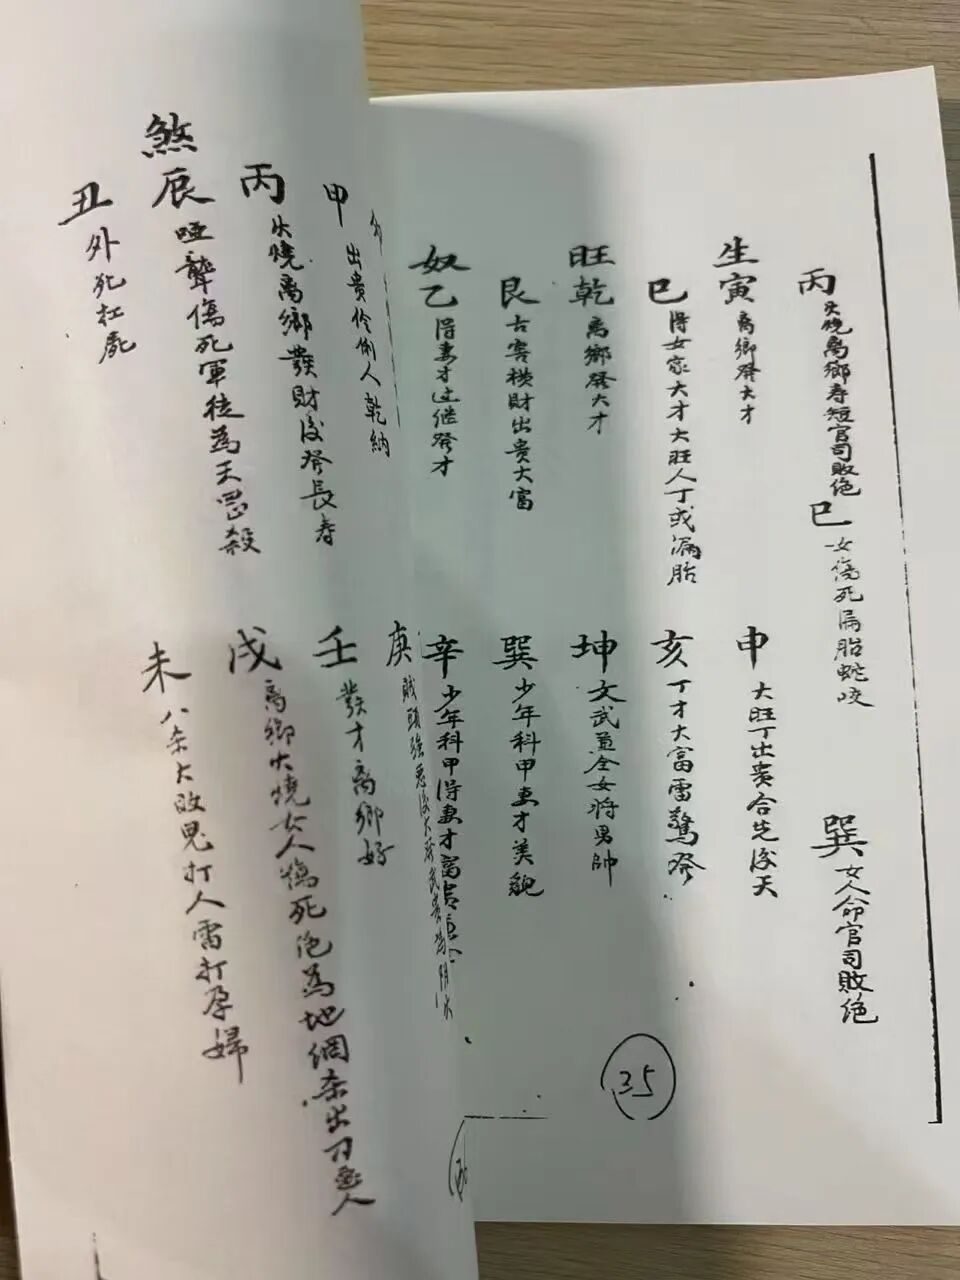 丙 火燒离鄉寿短官司敗绝
巳 女傷死漏胎蛇咬
巽 女人命官司敗绝
生寅 离鄉發大才
申 大旺丁出贵合先後天
巳 得女家大才大旺人丁或漏胎
亥 丁才大富雷驚發
旺乾 离鄉發大才
坤 文武全女将男帥
艮 古窖横財出贵大富
巽 少年科甲妻才美貌
奴乙 得妻才过继發才
辛 少年科甲得妻才富
35
甲 出貴伶俐人乾納
庚
丙 火燒离鄉發財後發長寿
壬 發才离鄉好
煞辰 哑聾傷死軍徒為天罡殺
戌 离鄉火燒女人傷死绝為地網杀出
丑 外死扛屍
未 八杀大敗鬼打人雷打孕婦